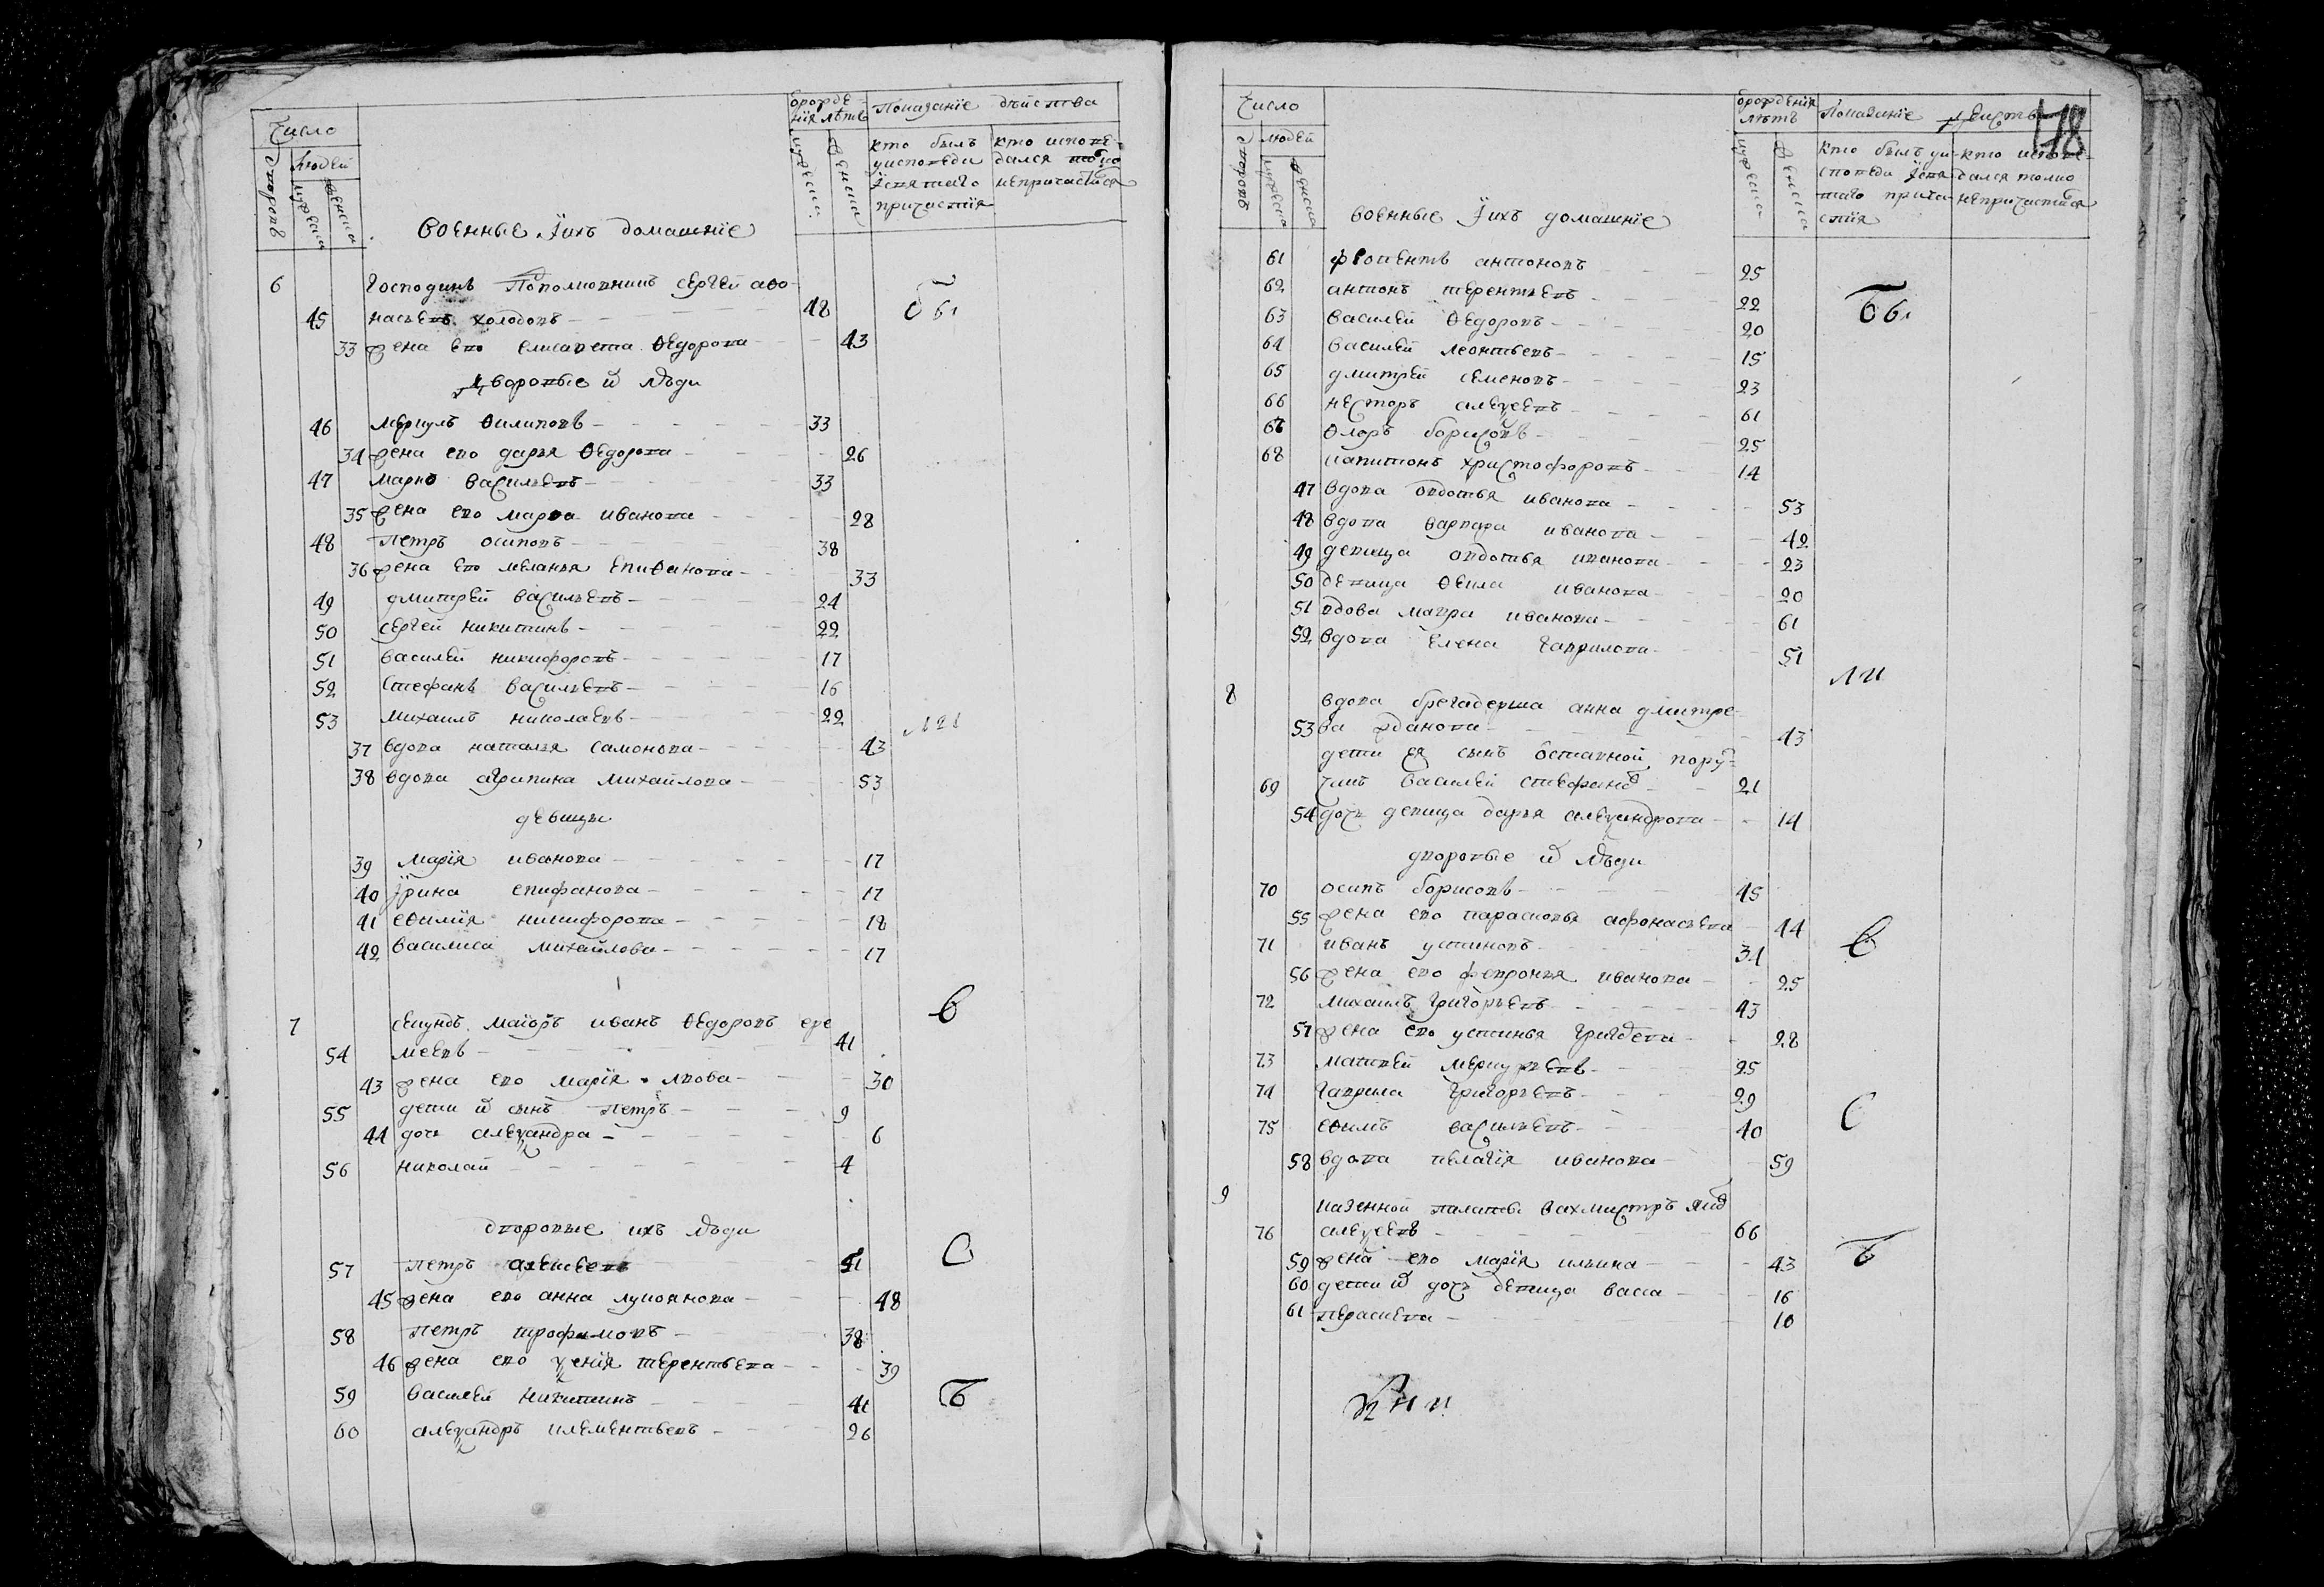 Число
Людей
дворовъ
мужеска
женска
военные ихъ домашнїе
ѿрожде
нїя лѣтъ
мужеска
женска
Показанїе дѣйства
кто былъ
уисповеди
испятаго
причастїя
кто испове
дался
непричастился
6 Господинъ Пополковникъ Сергей аѳо
45 насьевъ холодовъ 48
33 жена ево елисавета Ѳедорова 43
Дворовые и люди
46 меркулъ Ѳилиповъ 33
34 жена ево дарья Ѳедорова 26
47 марко васильевъ 33
35 жена ево марѳа иванова 28
48 петръ осиповъ 38
36 жена ево меланья епиѳанова 33
49 дмитрей васильевъ 24
50 сергей никитинъ 22
51 василей никифоровъ 17
52 стефанъ васильевъ 16
53 михаилъ николаевъ 22
37 вдова наталья самонова 43
38 вдова агрипина михайлова 53
девицы
39 марїя иванова 17
40 ирина епифанова 17
41 еѳимїя никифорова 18
42 василиса михайлова 17
7 секундъ маїоръ иванъ Ѳедоровъ ере
54 меевъ 41
43 жена ево марїя львова 30
55 дети и сынъ петръ 9
44 дочь алеѯандра 6
56 николай 4
дворовые ихъ люди
57 петръ алексеевъ 51
45 жена ево анна лукоянова 48
58 петръ трофимовъ 38
46 жена ево ѯенїя терентьева 39
59 василей никитинъ 41
60 алеѯандръ клементьевъ 26
бы
в
С
Ъ
118
Число
Людей
дворовъ
мужеска
женска
военные ихъ домашнїе
ѿрожденїя
лѣтъ
мужеска
женска
Показанїе дѣиства
кто былъ уи
споведи испя
таго прича
стїя
кто испове
дался токмо
непричастился
61 флоентъ антоновъ 25
62 антонъ терентьевъ 22
63 василей Ѳедоровъ 20
64 василей леонтьевъ 15
65 дмитрей семеновъ 23
66 несторъ алеѯеевъ 61
67 Ѳлоръ борисовъ 25
68 капитонъ христофоровъ 14
47 вдова овдотья иванова 53
48 вдова варвара иванова 42
49 девица овдотья иванова 23
50 девица Ѳекла иванова 20
51 вдова мавра иванова 61
52 вдова елена гаврилова 51
8 вдова брегадерша анна дмитре
53 ва жданова 43
дети ея сынъ ѿставной пору
69 чикъ василей стефановъ 21
54 дочь девица дарья алеѯандрова 14
дворовые и люди
70 осипъ борисовъ 45
55 жена ево парасковья афонасьева 44
71 иванъ устиновъ 31
56 жена ево февронья иванова 25
72 михаилъ григорьевъ 43
57 жена ево устинья 28
73 матвей меркурьевъ 25
74 гаврила григорьевъ 29
75 еѳимъ васильевъ 40
58 вдова пелагїя иванова 59
9 казенной палаты вахмистръ
76 алеѯеевъ 66
59 жена ево марїя ильина 43
60 дети и дочь девица васса 16
61 парасковья 10
бы
в
С
Ъ